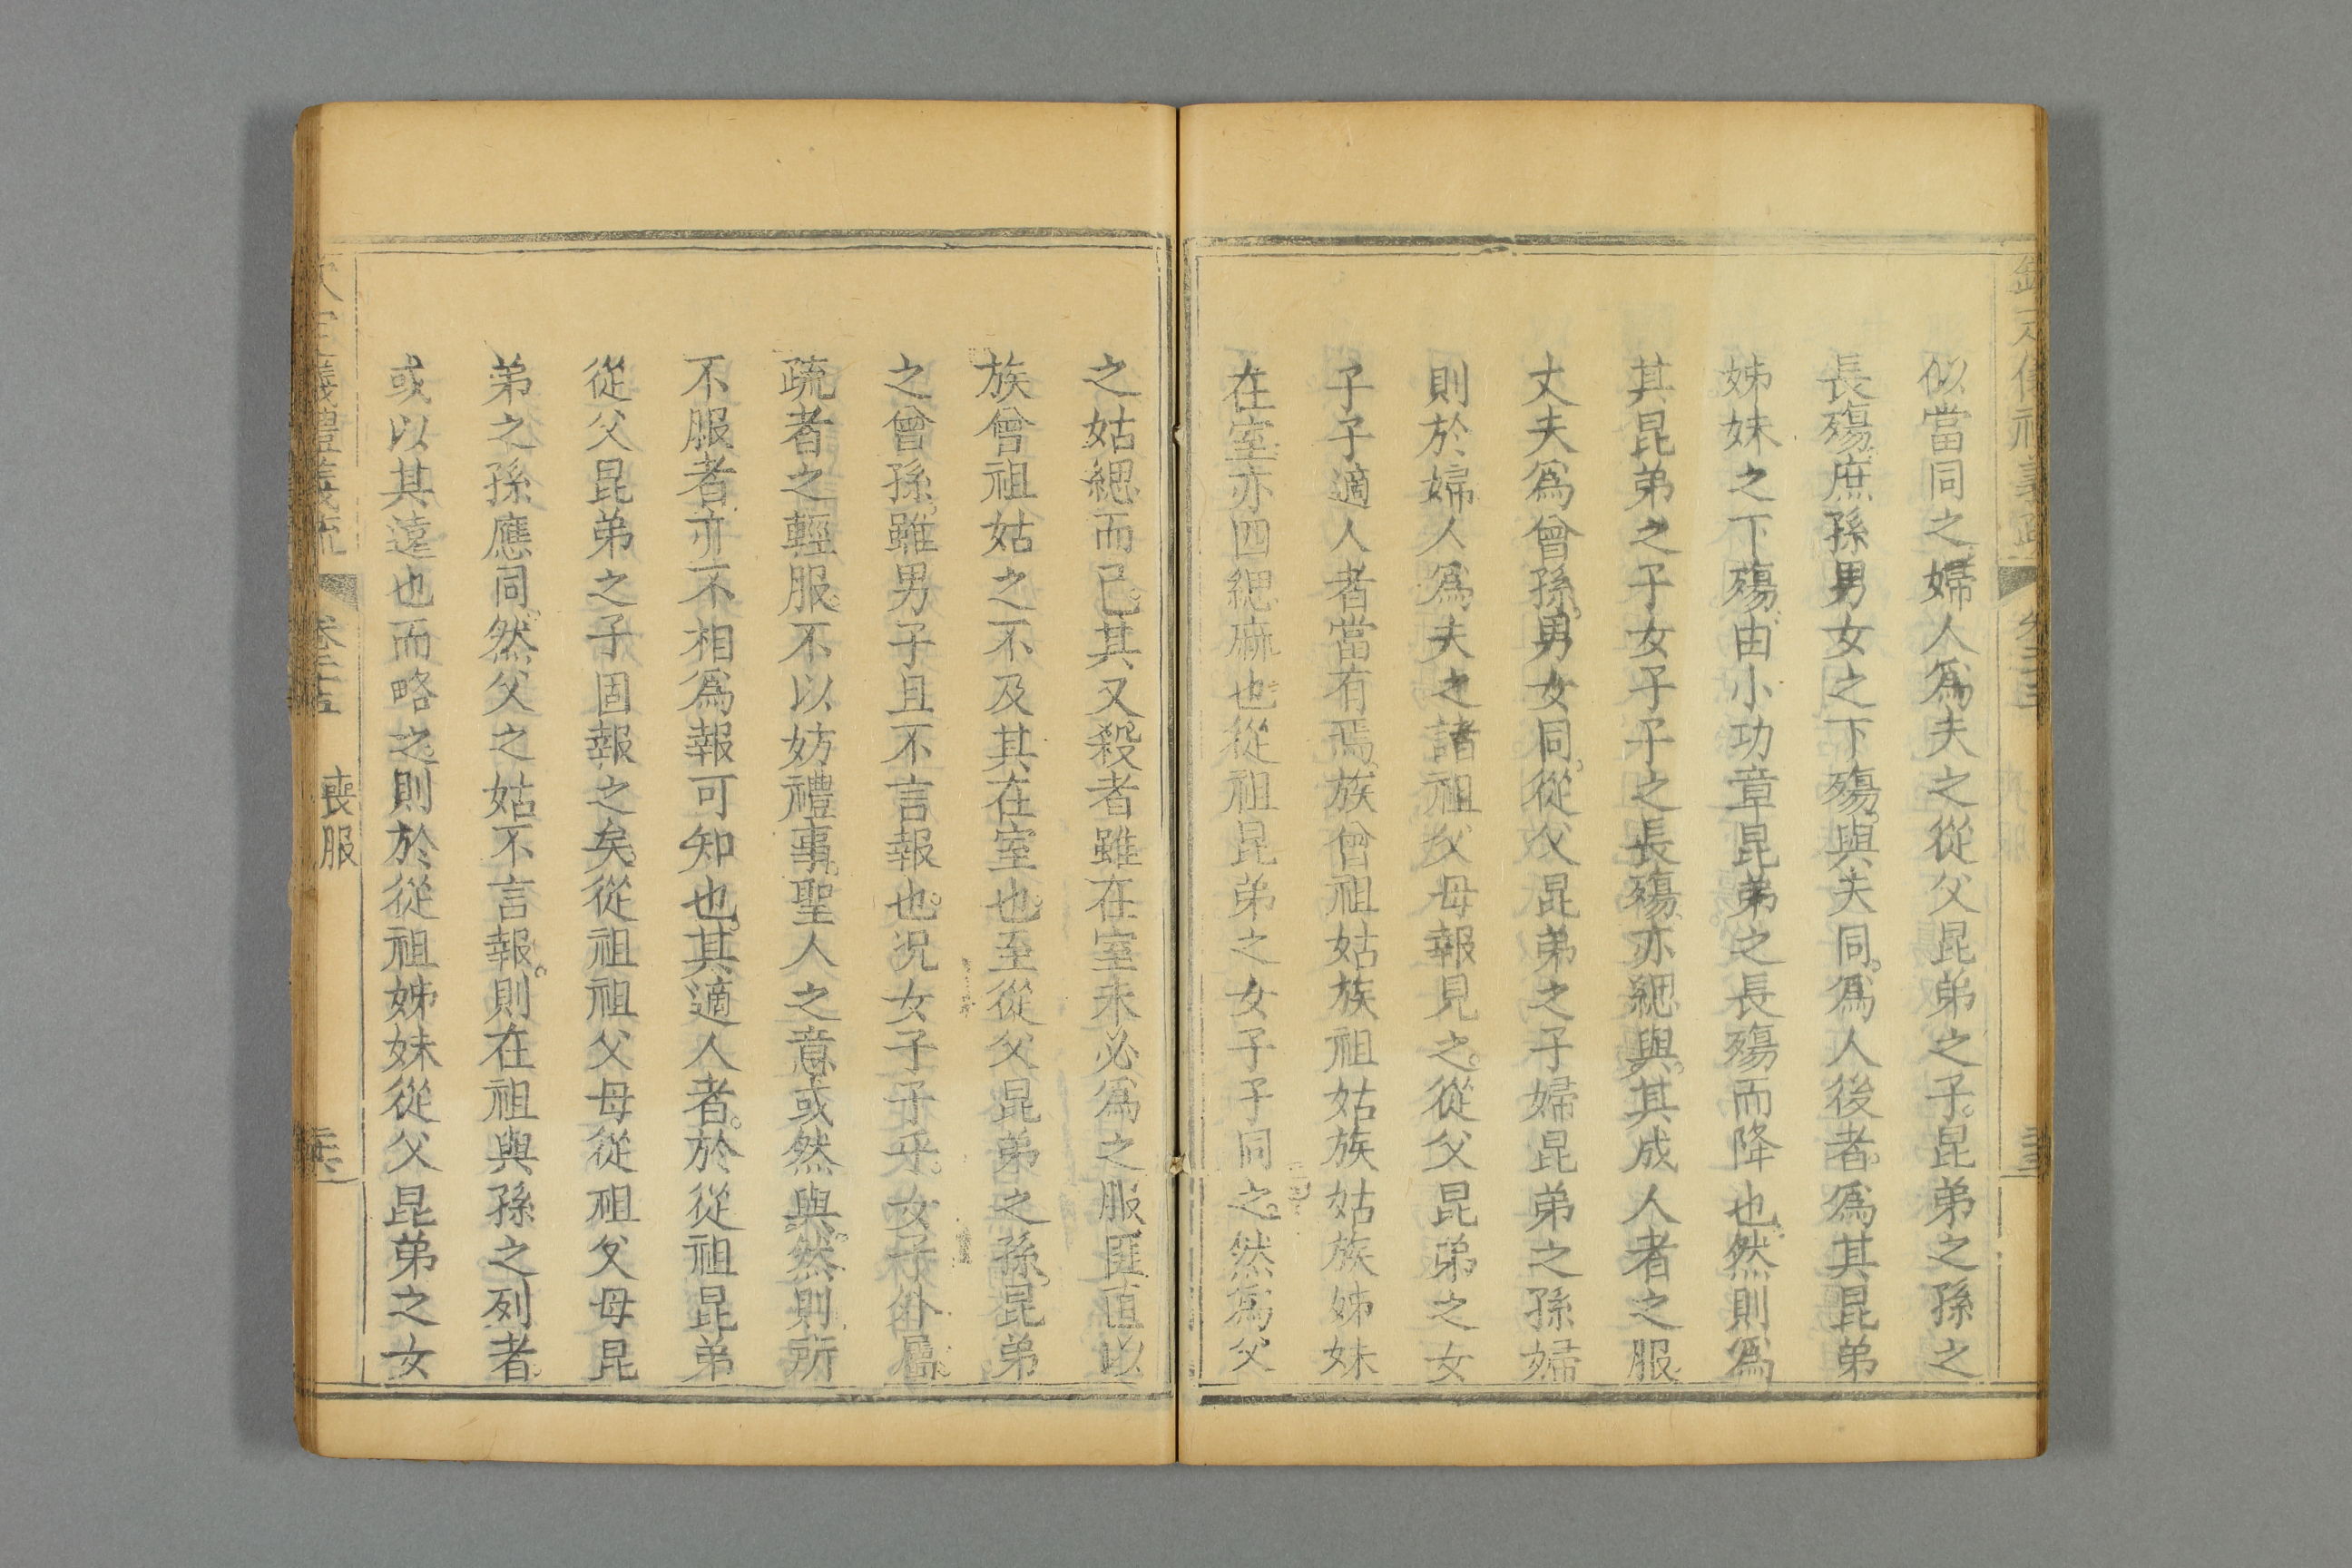 似當同之婦人爲夫之從父昆弟之子。昆弟之孫之
長殤。庶孫男女之下殤。與夫同。爲人後者。爲其昆弟
姊妹之下殤。由小功章昆弟之長殤而降也。然則爲
其昆弟之子女子子之長殤。亦緦與。其成人者之服。
丈夫爲曾孫。男女同。從父昆弟之子婦昆弟之孫婦
則於婦人爲夫之諸祖父母報見之。從父昆弟之女
子子適人者當有焉。族曾祖姑族祖姑族姑族姊妹
在室亦四緦麻也。從祖昆弟之女子子同之。然爲父
之姑緦而已。其又殺者雖在室未必爲之服匪直以
族曾祖姑之不及其在室也。至從父昆弟之孫。昆弟
之曾孫。雖男子且不言報也。况女子子乎。女子外屬。
疏者之輕服。不以妨禮事。聖人之意或然與。然則所
不服者亦不相爲報可知也。其適人者。於從祖昆弟
從父昆弟之子固報之矣。從祖祖父母從祖父母昆
弟之孫應同。然父之姑不言報。則在祖與孫之列者。
或以其遠也而略之。則於從祖姊妹從父昆弟之女
喪服